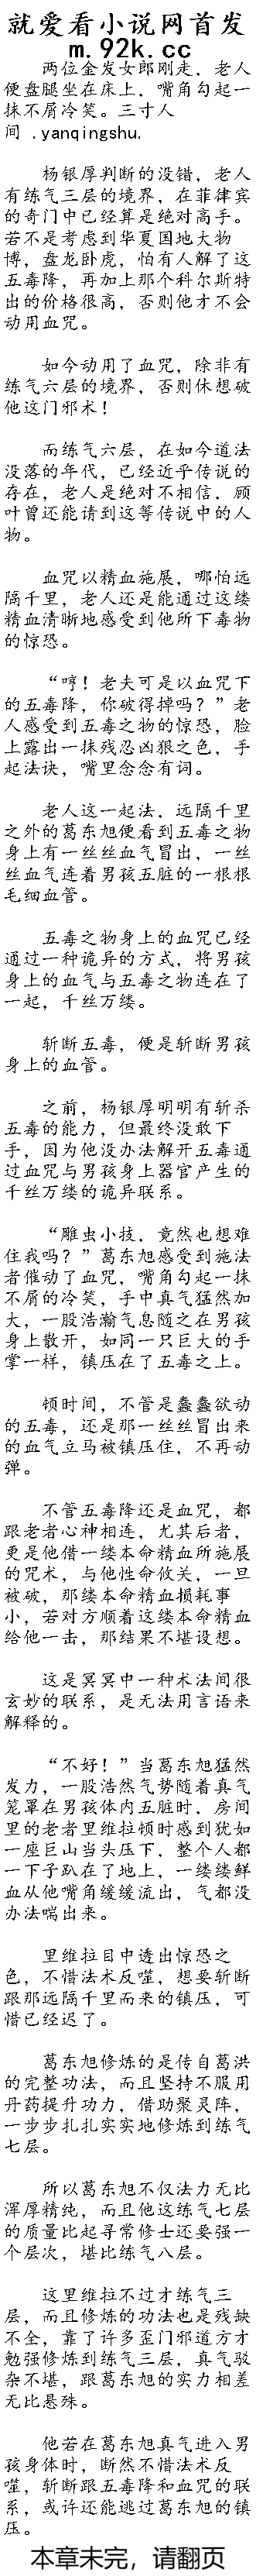 就爱看小说网首发
m.92k.cc
两位金发女郎刚走，老人
便盘腿坐在床上，嘴角勾起一
抹不屑冷笑。三寸人
间 .yanqingshu.
杨银厚判断的没错，老人
有练气三层的境界，在菲律宾
的奇门中已经算是绝对高手。
若不是考虑到华夏国地大物
博，盘龙卧虎，怕有人解了这
五毒降，再加上那个科尔斯特
出的价格很高，否则他才不会
动用血咒。
如今动用了血咒，除非有
练气六层的境界，否则休想破
他这门邪术！
而练气六层，在如今道法
没落的年代，已经近乎传说的
存在，老人是绝对不相信，顾
叶曾还能请到这等传说中的人
物。
血咒以精血施展，哪怕远
隔千里，老人还是能通过这缕
精血清晰地感受到他所下毒物
的惊恐。
“哼！老夫可是以血咒下
的五毒降，你破得掉吗？”老
人感受到五毒之物的惊恐，脸
上露出一抹残忍凶狠之色，手
起法诀，嘴里念念有词。
老人这一起法，远隔千里
之外的葛东旭便看到五毒之物
身上有一丝丝血气冒出，一丝
丝血气连着男孩五脏的一根根
毛细血管。
五毒之物身上的血咒已经
通过一种诡异的方式，将男孩
身上的血气与五毒之物连在了
一起，千丝万缕。
斩断五毒，便是斩断男孩
身上的血管。
之前，杨银厚明明有斩杀
五毒的能力，但最终没敢下
手，因为他没办法解开五毒通
过血咒与男孩身上器官产生的
千丝万缕的诡异联系。
“雕虫小技，竟然也想难
住我吗？”葛东旭感受到施法
者催动了血咒，嘴角勾起一抹
不屑的冷笑，手中真气猛然加
大，一股浩瀚气息随之在男孩
身上散开，如同一只巨大的手
掌一样，镇压在了五毒之上。
顿时间，不管是蠢蠢欲动
的五毒，还是那一丝丝冒出来
的血气立马被镇压住，不再动
弹。
不管五毒降还是血咒，都
跟老者心神相连，尤其后者，
更是他借一缕本命精血所施展
的咒术，与他性命攸关，一旦
被破，那缕本命精血损耗事
小，若对方顺着这缕本命精血
给他一击，那结果不堪设想。
这是冥冥中一种术法间很
玄妙的联系，是无法用言语来
解释的。
“不好！”当葛东旭猛然
发力，一股浩然气势随着真气
笼罩在男孩体内五脏时，房间
里的老者里维拉顿时感到犹如
一座巨山当头压下，整个人都
一下子趴在了地上，一缕缕鲜
血从他嘴角缓缓流出，气都没
办法喘出来。
里维拉目中透出惊恐之
色，不惜法术反噬，想要斩断
跟那远隔千里而来的镇压，可
惜已经迟了。
葛东旭修炼的是传自葛洪
的完整功法，而且坚持不服用
丹药提升功力，借助聚灵阵，
一步步扎扎实实地修炼到练气
七层。
所以葛东旭不仅法力无比
浑厚精纯，而且他这练气七层
的质量比起寻常修士还要强一
个层次，堪比练气八层。
这里维拉不过才练气三
层，而且修炼的功法也是残缺
不全，靠了许多歪门邪道方才
勉强修炼到练气三层，真气驳
杂不堪，跟葛东旭的实力相差
无比悬殊。
他若在葛东旭真气进入男
孩身体时，断然不惜法术反
噬，斩断跟五毒降和血咒的联
系，或许还能逃过葛东旭的镇
压。
本章未完，请翻页